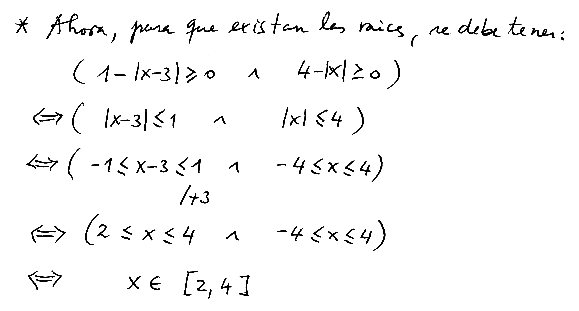 * Ahora, para que existan las raíces, se debe tener:
( 1-|x-3| ≥ 0 ∧ 4-|x| ≥ 0 )
⇔ ( |x-3| ≤ 1 ∧ |x| ≤ 4 )
⇔ ( -1 ≤ x-3 ≤ 1 ∧ -4 ≤ x ≤ 4)
/+3
⇔ (2 ≤ x ≤ 4 ∧ -4 ≤ x ≤ 4)
⇔ x ∈ [2, 4]